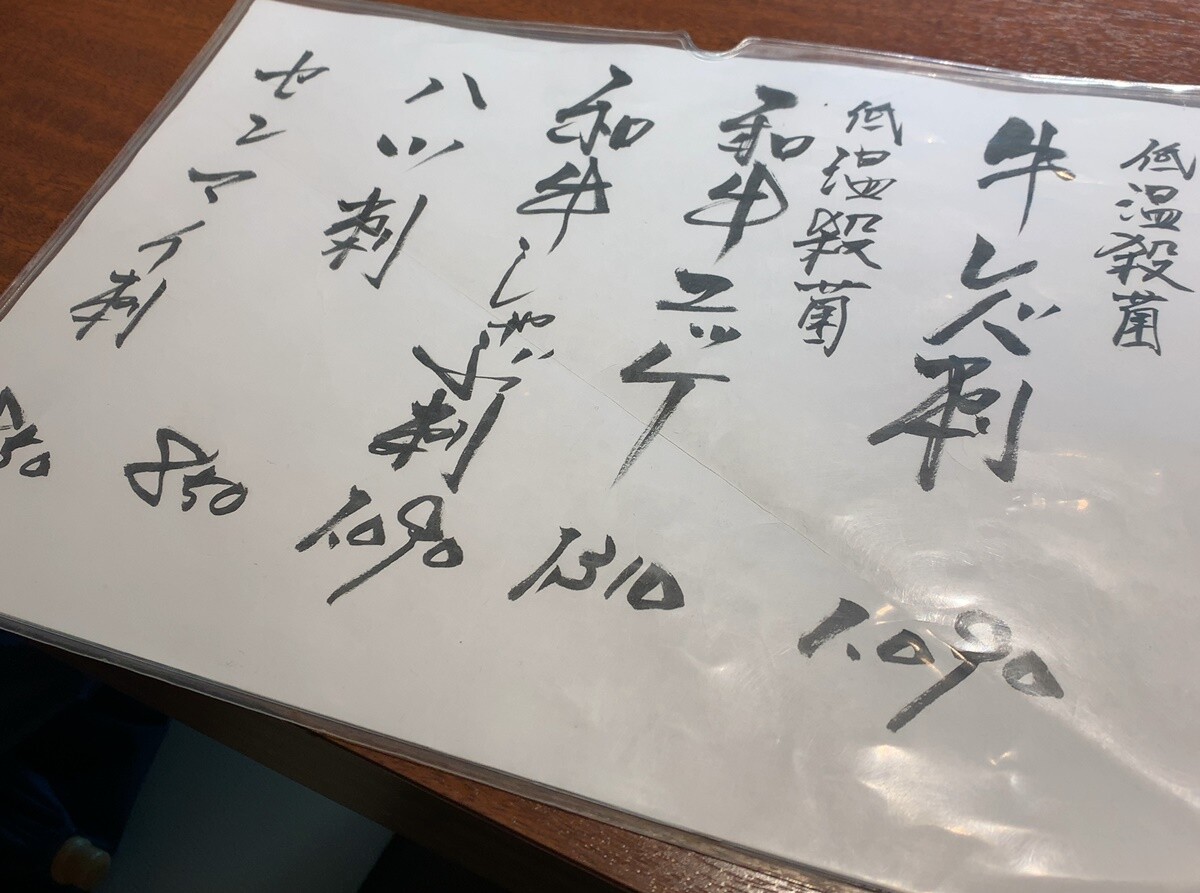 低温殺菌
牛レバ刺
1.090
低温殺菌
和牛ユッケ
1.310
和牛しゃぶ刺
1.090
ハツ刺
850
センマイ刺
850